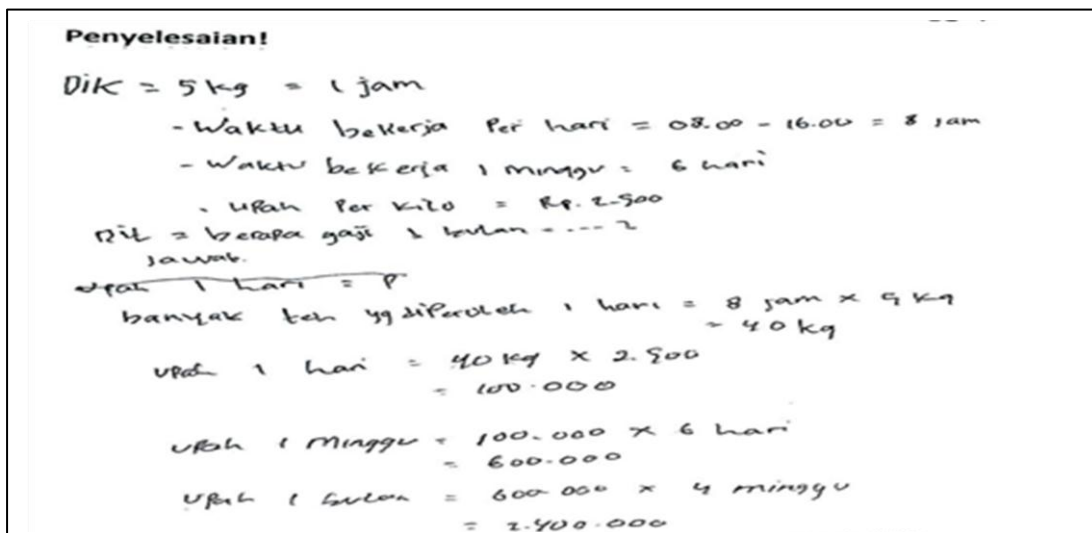 Penyelesaian!
Dik = 5 kg = 1 jam
- Waktu bekerja Per hari = 08.00 - 16.00 = 8 jam
- Waktu bekerja 1 minggu = 6 hari
- Upah Per kilo = Rp. 2.500
Dit = berapa gaji 1 bulan = .... ?
Jawab.
Upah 1 hari = P
banyak teh yg diperoleh 1 hari = 8 jam × 5 kg
= 40 kg
Upah 1 hari = 40 kg × 2.500
= 100.000
Upah 1 minggu = 100.000 × 6 hari
= 600.000
Upah 1 bulan = 600 000 × 4 minggu
= 2.400.000